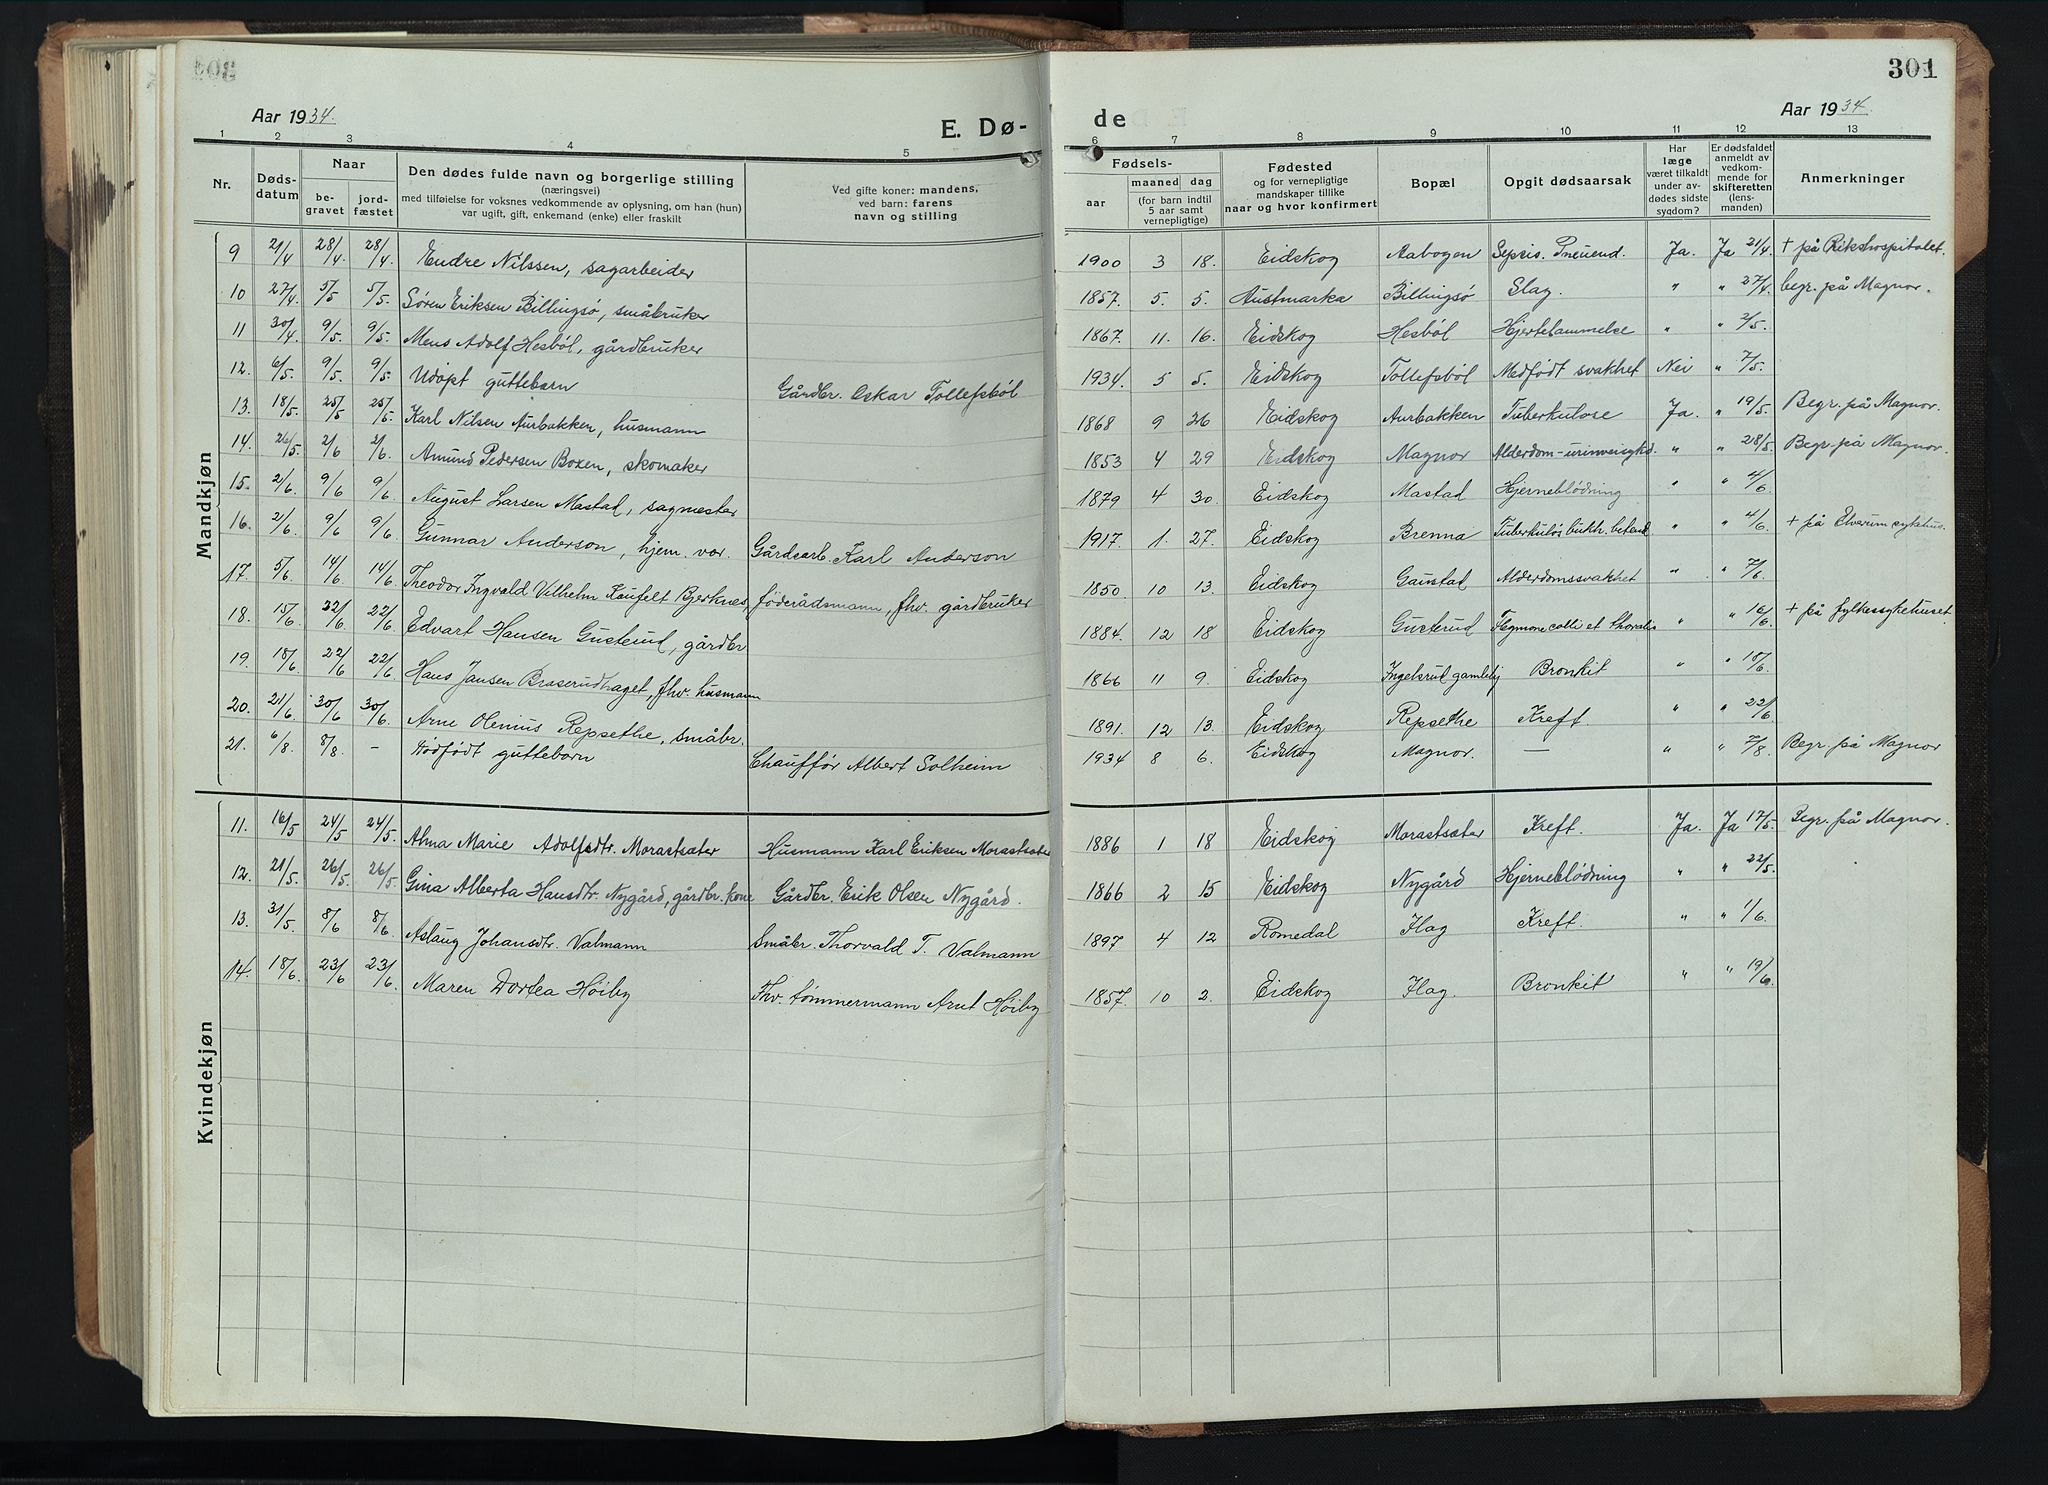 301
Aar 1934.
E. Dø-
de
Aar 1934.
1 2 3 4 5 6 7 8 9 10 11 12 13
Nr.
Døds-
datum
Naar
be-
gravet
jord-
fæstet
Den dødes fulde navn og borgerlige stilling
(næringsvei)
med tilføielse for voksnes vedkommende av oplysning, om han (hun)
var ugift, gift, enkemand (enke) eller fraskilt
Ved gifte koner: mandens,
ved barn: farens
navn og stilling
Fødsels-
aar
maaned dag
(for barn indtil
5 aar samt
vernepligtige)
Fødested
og for vernepligtige
mandskaper tillike
naar og hvor konfirmert
Bopæl
Opgit dødsaarsak
Har
læge
været tilkaldt
under av-
dødes sidste
sygdom?
Er dødsfaldet
anmeldt av
vedkom-
mende for
skifteretten
(lens-
manden)
Anmerkninger
Mandkjøn
9 21/4 28/4. 28/4. Endre Nilssen, sagarbeider 1900 3 18. Eidskog Aabogen Sepsis. Pneuend. Ja. Ja 21/4. + på Rikshospitalet.
10 27/4 5/5 5/5. Søren Eriksen Billingsø, småbruker 1857. 5. 5. Austmarka Billingsø Slag. " " 27/4. begr. på Magnor.
11 30/4 9/5. 9/5. Mens Adolf Hesböl, gårdbruker 1867. 11. 16. Eidskog Hesböl Hjertelammelse " " 2/5.
12. 6/5. 9/5. 9/5. Udøpt guttebarn Gårdbr. Oskar Tollefsböl 1934. 5 5. Eidskog Tollefsböl Medfødt svakhet Nei " 7/5.
13. 18/5. 25/5 25/5. Karl Nilsen Aurbakken, husmann 1868 9 26 Eidskog Aurbakken Tuberkulose Ja. " 19/5. Begr. på Magnor.
14. 26/5. 2/6 2/6. Amund Pedersen Boxen, skomaker 1853 4 29 Eidskog Magnor Alderdom-urinveisykd. " " 28/5. Begr. på Magnor.
15. 2/6. 9/6 9/6. August Larsen Mastad, sagmester 1879 4 30. Eidskog Mastad Hjerneblödning " " 4/6.
16. 2/6. 9/6 9/6. Gunnar Anderson, hjem. var. Gårdsarb. Karl Anderson 1917. 1. 27. Eidskog Brenna " " 4/6. + på Elverum sykehus.
17. 5/6. 14/6 14/6. Theodor Ingvald Vilhelm Kaufelt Bjerknes, föderådsmann, fhv. gårdbruker 1850. 10 13. Eidskog Gaustad Alderdomssvakhet " " 7/6.
18. 15/6. 22/6 22/6. Edvart Hansen Gusterud, gårdbr 1884. 12 18 Eidskog Gusterud Flegmone colli et thoralis " " 16/6. + på fylkessykehuset.
19. 18/6. 22/6 22/6. Hans Jansen Braserudhaget, fhv. husmann 1866 11 9. Eidskog Ingelsrud gamlehj Bronkit " " 18/6.
20. 21/6. 30/6 30/6. Arne Olenius Repsethe, småbr. 1891. 12 13. Eidskog Repsethe Kreft. " " 22/6.
21. 6/8. 8/8. - Dödfødt guttebarn Chauffør Albert Solheim 1934 8 6. Eidskog Magnor. — " " 7/8. Begr. på Magnor
Kvindekjøn
11. 16/5 24/5 24/5 Alma Marie Adolfsdtr. Morastsæter Husmann Karl Eriksen Morastsæter 1886 1 18 Eidskog Morastsæter Kreft. Ja. Ja 17/5. Begr. på Magnor.
12. 21/5. 26/5. 26/5. Gina Alberta Hansdtr. Nygård, gårdbr. kone Gårdbr. Erik Olsen Nygård. 1866 2 15 Eidskog Nygård Hjerneblödning " " 22/5.
13. 31/5. 8/6 8/6. Aslaug Johansdtr. Valmann Småbr. Thorvald T. Valmann 1897 4 12 Romedal Flag Kreft. " " 1/6.
14. 18/6. 23/6 23/6. Maren Dortea Höiby Fhv. tömmermann Arnt Höiby 1857. 10 2. Eidskog Flag. Bronkit " " 19/6.